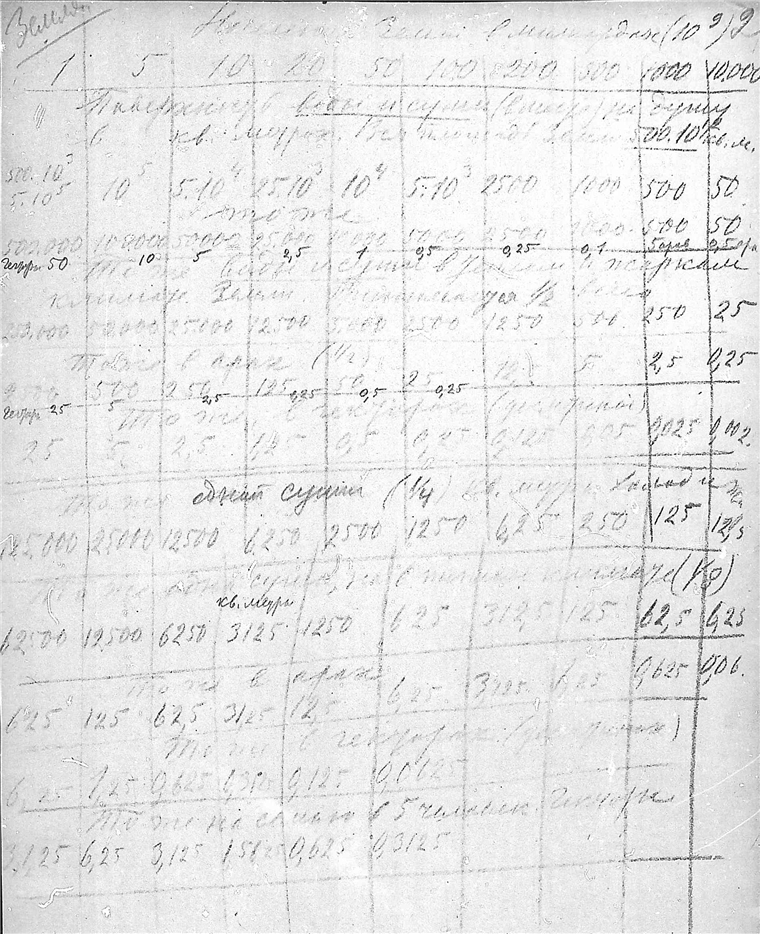 Земля.
Население Земли в миллиардах (10⁹) 2
1 5 10 20 50 100 200 500 1000 10.000
Поверхность воды и суши (вместе) на душу
в кв. метрах. Вся площадь Земли 500.10¹² кв. м.
500.10³
5.10⁵ 10⁵ 5.10⁴ 25.10³ 10⁴ 5.10³ 2500 1000 500 50
то же
500.000 100000 50000 25.000 10000 5000 2500 1000 500 50
50 10 5 2,5 1 0,5 0,25 0,1
То же воды и суши в и жарком
климате. Земли ½ всего
250.000 50000 25.000 12500 5000 2500 1250 500 250 25
То же в арах (½)
2500 500 250 125 50 25 12,5 5 2,5 0,25
25 5 2,5 1,25 0,5 0,25
То же, в гектарах
25 5 2,5 1,25 0,5 0,25 0,125 0,05 0,025 0,002
То же одной суши (¼) кв. метры
125.000 25000 12500 6250 2500 1250 625 250 125 12,5
То же одна суша, но в климате (⅛)
кв. метры
62500 12500 6250 3125 1250 625 312,5 125 62,5 6,25
То же в арах
625 125 62,5 31,25 12,5 6,25 3,125 0,625 0,06
То же в гектарах
6,25 1,25 0,625 0,3125 0,125 0,0625
То же на семью в 5 человек. Гектары
31,25 6,25 3,125 1,5625 0,625 0,3125